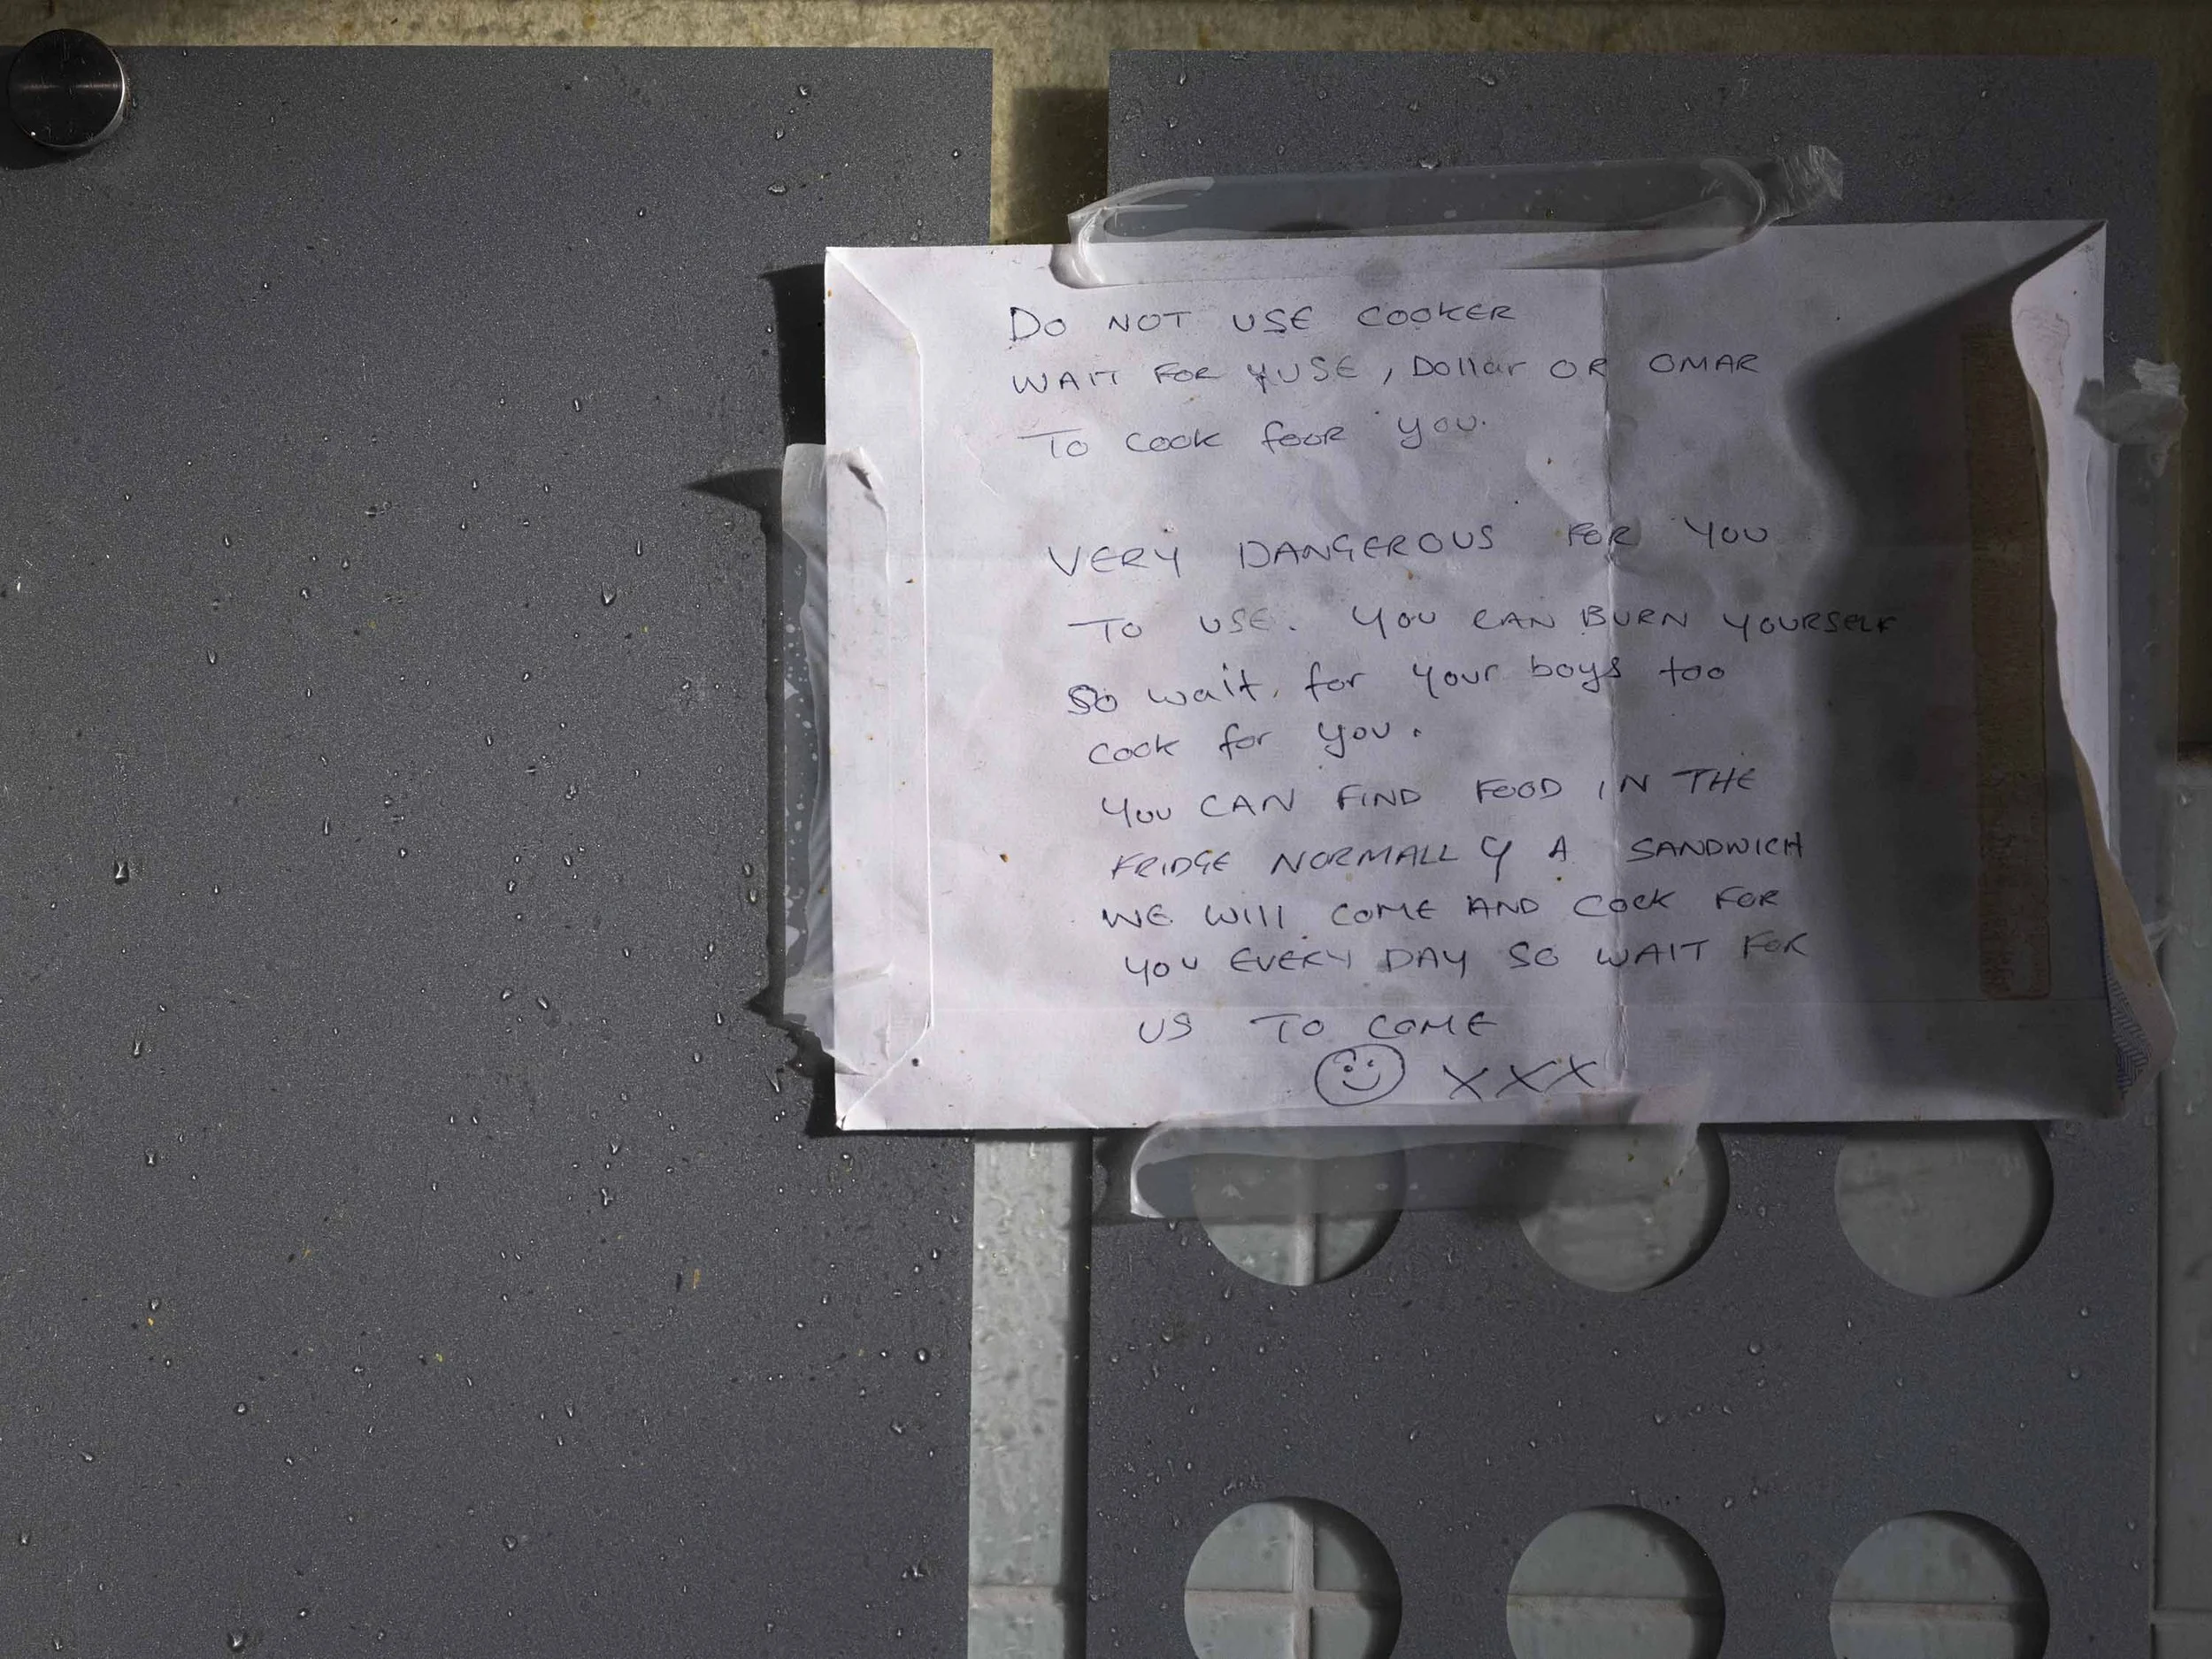 DO NOT USE COOKER
WAIT FOR YUSE, Dollar OR OMAR
TO COOK fOOR YOU.
VERY DANGEROUS FOR YOU
TO USE. YOU CAN BURN YOURSELF
So wait for your boys too
Cook for you.
YOU CAN FIND FOOD IN THE
FRIDGE NORMALLY A SANDWICH
WE WIll COME AND COOK FOR
YOU EVERY DAY SO WAIT FOR
US TO COME
XXX